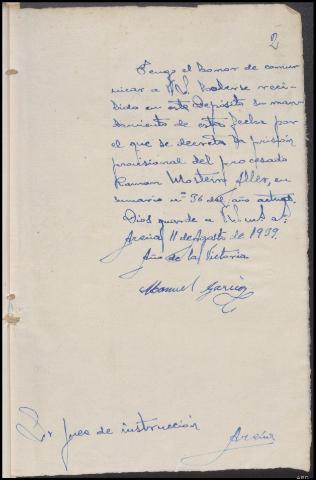 2
Tengo el honor de comu-
nicar a V.S. haberse reci-
bido en este Depósito su man-
damiento de esta fecha por
el que se decreta la prisión
provisional del procesado
Ramón Aller, en
sumario nº 36 del año actual.
Dios guarde a V. muchos a:
11 de Agosto de 1939.
Año de la Victoria
Manuel García
Sr Juez de instrucción